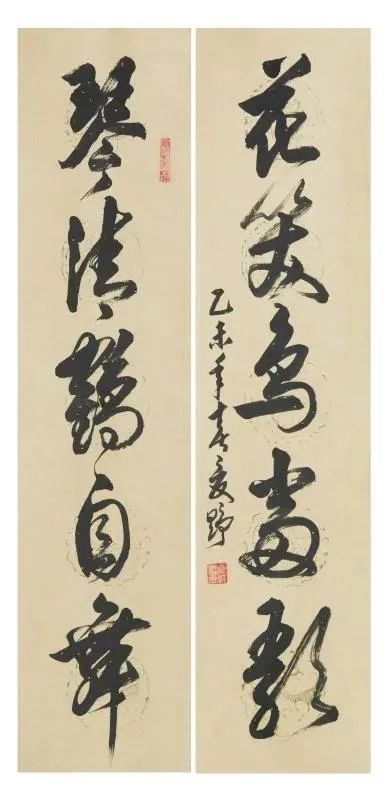 琴清鶴自舞
花笑鳥當歌
乙未年春野